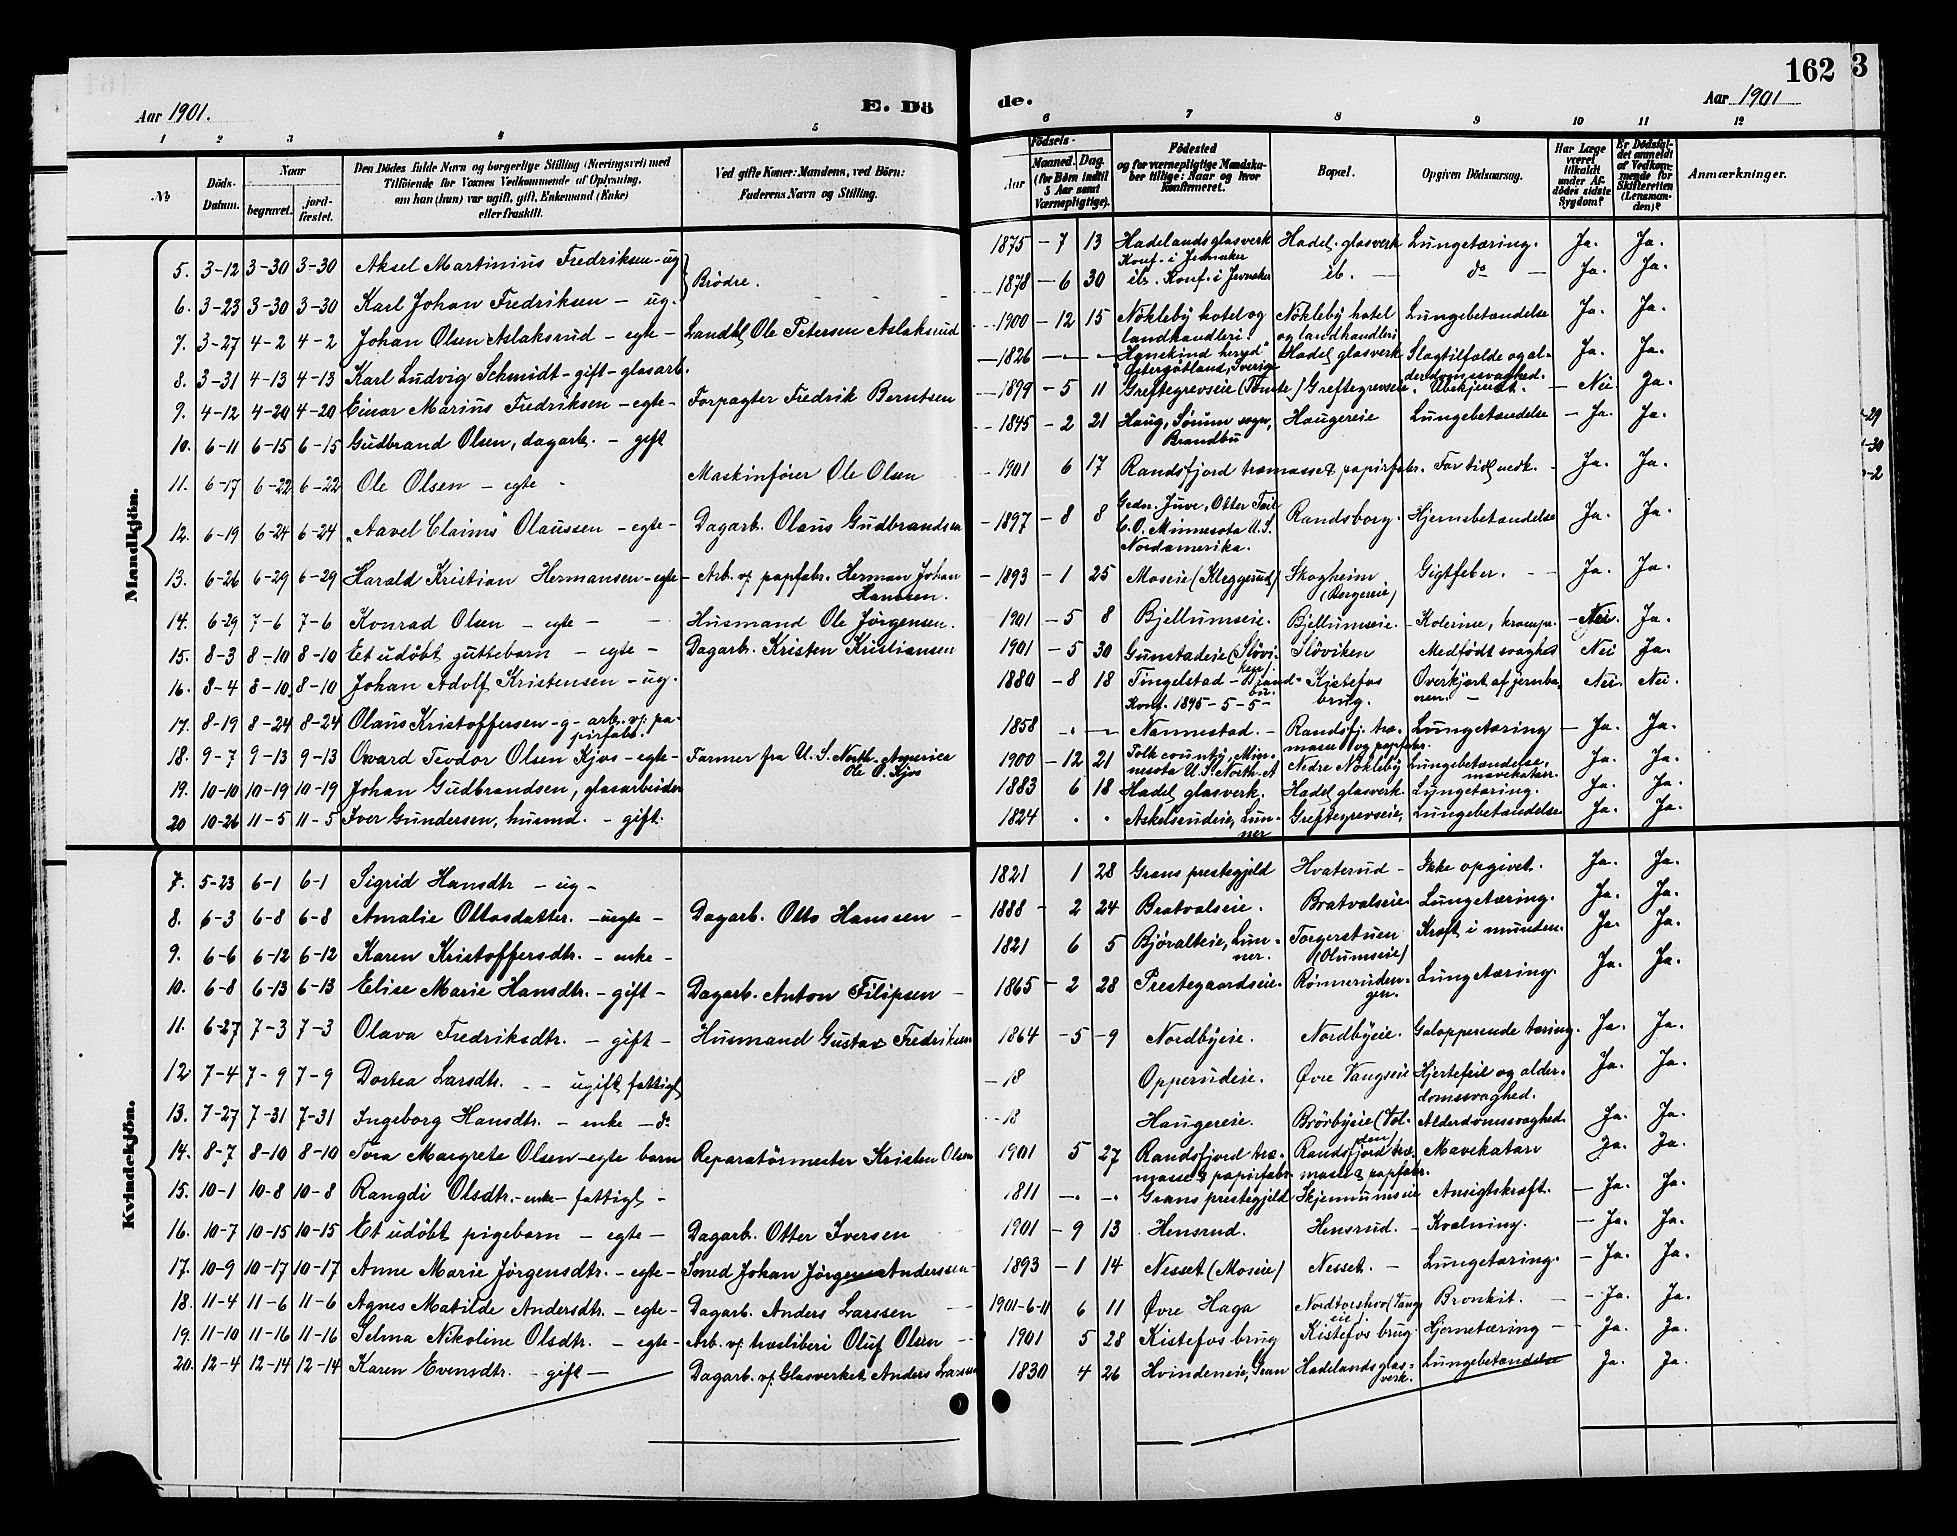 162 3
Aar 1901. E. Dö de. Aar 1901
1 2 3 4 5 6 7 8 9 10 11 12
No
Döds-Datum.
Naar
begravet.
jordfæstet.
Den Dödes fulde Navn og borgerlige Stilling (Næringsvei) med
Tilföiende for Voxnes Vedkommende af Oplysning,
om han (hun) var ugift, gift, Enkemand (Enke)
eller fraskilt.
Ved gifte Koner: Mandens, ved Börn:
Faderens Navn og Stilling.
Födsels-
Aar
Maaned. Dag.
(for Börn indtil
5 Aar samt
Værnepligtige).
Födested
og for værnepligtige Mandska-
ber tillige: Naar og hvor
konfirmeret.
Bopæl.
Opgiven Dödsaarsag.
Har Læge
været
tilkaldt
under Af-
dödes sidste
Sygdom?
Er Dödsfal-
det anmeldt
af Vedkom-
mende for
Skifteretten
(Lensman-
den)?
Anmærkninger.
Mandkjön.
5. 3-12 3-30 3-30 Aksel Martinius Fredriksen - ug Brödre. 1875 - 7 13 Hadelands glasverk Konf. i Jevnaker Hadel. glasverk Lungetæring. Ja. Ja.
6. 3-23 3-30 3-30 Karl Johan Fredriksen - ug. 1878 - 6 30 ib. Konf. i Jevnaker ib. - do - Ja. Ja.
7. 3-27 4-2 4-2 Johan Olsen Aslaksrud - egte - Landhl. Ole Petersen Aslaksrud 1900 - 12 15 Nökleby hotel og landhandleri. Nökleby hotel og landhandleri Lungebetændelse Ja. Ja.
8. 3-31 4-13 4-13 Karl Ludvig Schmidt - gift - glasarb. 1826 - - - Östergötland, Sverige Hadel glasverk Slagtilfælde og alderdomssvaghed. Ja. Ja.
9. 4-12 4-20 4-20 Einar Marius Fredriksen - egte - Forpagter Fredrik Berntsen 1899 - 5 11 Greftegrevseie (Tomte) Greftegrevseie Ubekjendt. - Nei Ja.
10. 6-11 6-15 6-15 Gudbrand Olsen, dagarb. - gift 1845 - 2 21 Haug, Sörum sogn, Brandbu Haugereie Lungebetændelse - Ja. Ja.
11. 6-17 6-22 6-22 Ole Olsen - egte - Maskinförer Ole Olsen 1901 6 17 Randsfjord træmasse & papirfabr. For tidl. nedk. - Ja. Ja.
12. 6-19 6-24 6-24 "Aavel Claims" Olaussen - egte - Dagarb. Olaus Gudbrandsen 1897 - 8 8 Gedn. Juve, Otter Tail C.O. Minnesota U.S. Nordamerika. Randsborg. Hjernebetændelse Ja. Ja.
13. 6-26 6-29 6-29 Harald Kristian Hermansen - egte - Arb. v. papfabr. Herman Johan Hansen. 1893 - 1 25 Moseie (Kleggerud) Skogheim (Bergereie) Gigtfeber. - Ja. Ja.
14. 6-29 7-6 7-6 Konrad Olsen - egte - - Husmand Ole Jörgensen. 1901 - 5 8 Bjellumseie. Bjellumseie. - Kolerine, krampe. - Nei. Ja.
15. 8-3 8-10 8-10 Et udöbt guttebarn - egte - Dagarb. Kristen Kristiansen 1901 - 5 30 Gunstadeie (Slöviken). Slöviken Medfödt svaghed Nei Ja.
16. 8-4 8-10 8-10 Johan Adolf Kristensen - ug. 1880 - 8 18 Tingelstad - Brandbu. Konf. 1895-5-5- Kistefos brug. Overkjört af jernbanen. - Nei. Nei.
17. 8-19 8-24 8-24 Olaus Kristoffersen - g - arb. v. papirfabr. 1858 - - Nannestad. - Randsfj. træmasse og papfabr. Lungetæring - Ja. Ja.
18. 9-7 9-13 9-13 Ovard Tevdor Olsen Kjos - egte - Farmer fra U.S. North-America Ole O. Kjos 1900 - 12 21 Polk county, Minnesota U.S. North. A Nedre Nökleby Lungebetændelse, mavekatarr. Ja. Ja.
19. 10-10 10-19 10-19 Johan Gudbrandsen, glasarbeider 1883 6 18 Hadel glasverk. Hadel glasverk. Lungetæring. Ja. Ja.
20 10-26 11-5 11-5 Iver Gundersen, husmd. - gift. 1824 . . Askelsrudeie, Lunner Greftegrevseie, Lungebetændelse Ja. Ja.
Kvindekjön.
7. 5-23 6-1 6-1 Sigrid Hansdtr - ug - 1821 1 28 Grans prestegjeld Hvaterud - Ikke opgivet. Ja. Ja.
8. 6-3 6-8 6-8 Amalie Ottosdatter. - uegte - Dagarb. Otto Hanssen - 1888 - 2 24 Bratvalseie. Bratvalseie. Lungetæring. Ja. Ja.
9. 6-6 6-12 6-12 Karen Kristoffersdtr. - enke - 1821 6 5 Björalteie, Lunner. Torgerstuen (Olumseie) Kræft i munden. Ja. Ja.
10. 6-8 6-13 6-13 Elise Marie Hansdtr. - gift - Dagarb. Anton Filipsen - 1865 - 2 28 Prestegaardseie. Rönnerudengen. Lungetæring. Ja. Ja.
11. 6-27 7-3 7-3 Olava Fredriksdtr. - gift - Husmand Gustav Fredriksen 1864 - 5 - 9 Nordbyeie. Nordbyeie. Galopperende tæring. Ja. Ja.
12 7-4 7-9 7-9 Dortea Larsdtr. - - ugift, fattigl. - 18 Opperudeie. Övre Vangseie Hjertefeil og alderdomssvaghed. Ja. Ja.
13. 7-27 7-31 7-31 Ingeborg Hansdtr. - enke - do 18 Haugereie. Brörbyeie Alderdomssvaghed. Ja. Ja.
14. 8-7 8-10 8-10 Tora Margrete Olsen - egte barn Reparatörmester Kristen Olsen 1901 5 27 Randsfjord træmasse & papirfabr. Randsfjord træmasse & papfabr. Mavekatarr Ja. Ja.
15. 10-1 10-8 10-8 Rangdi Olsdtr. - enke - fattigl - 1811 - - Grans prestegjeld Skjenmumseie Ansigtskræft. - Ja. Ja.
16. 10-7 10-15 10-15 Et udöbt pigebarn - egte - Dagarb. Otter Iversen 1901 - 9 13 Hensrud. Hensrud. - Kvælning. - Ja. Ja.
17. 10-9 10-17 10-17 Anne Marie Jörgensdtr. - egte - Smed Johan Jörgen Anderssen - 1893 - 1 14 Nesset (Moseie) Nesset. - Lungetæring. - Ja. Ja.
18. 11-4 11-6 11-6 Agnes Matilde Andersdtr. - egte - Dagarb. Anders Larssen - 1901-6-11 6 11 Övre Haga Nordtorshov (Vangseie). Bronkit. - - Ja. Ja.
19. 11-10 11-16 11-16 Selma Nikoline Olsdtr. - egte - Arb. v. træsliberi Oluf Olsen 1901 5 28 Kistefos brug Kistefos brug. Hjernetæring - - Ja. Ja.
20. 12-4 12-14 12-14 Karen Evensdtr. - gift - Dagarb. v. Glasverket Anders Larssen 1830 4 26 Hvindeneie, Gran Hadelands glasverk. Lungebetændelse Ja. Ja.